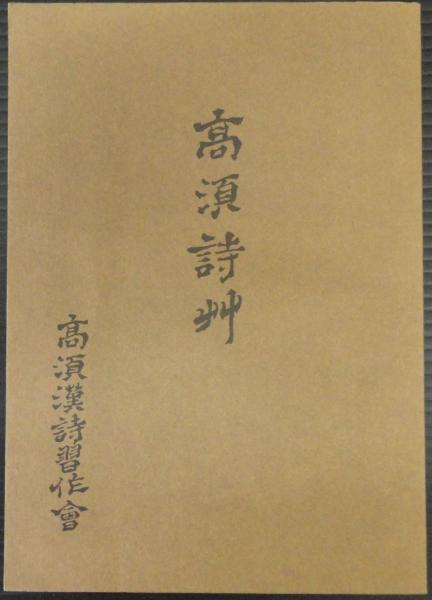 髙須詩艸
髙須漢詩習作會